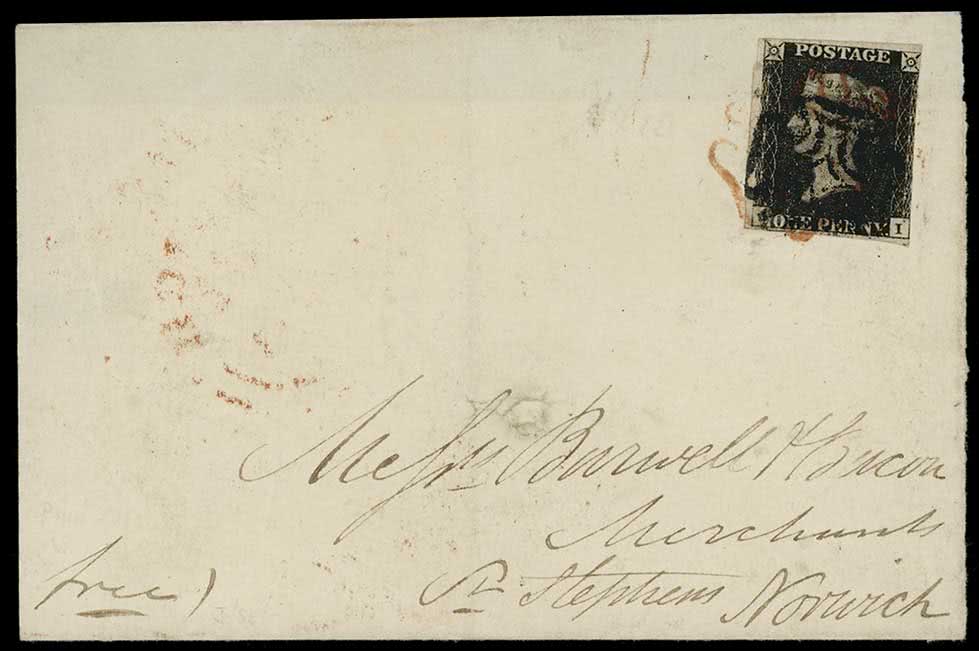 POSTAGE
ONE PENNY. I
Messrs Barwell &
Merchants
St Stephens Norwich
free)